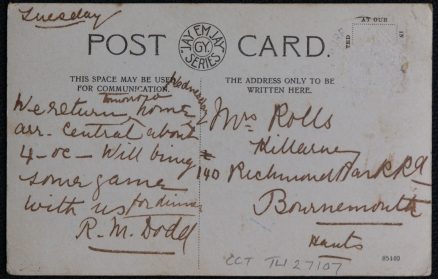 Tuesday
POST CARD.
JAY EM JAY
GY
SERIES
THIS SPACE MAY BE USED
FOR COMMUNICATION.
THE ADDRESS ONLY TO BE
WRITTEN HERE.
We return home
tomorrow Wednesday
arr. Central about
4-oc- Will bring
some game
with us for dinner
R. M. Dodd
Mrs Rolls
Killarney
140 Richmond Park Rd
Bournemouth
Hants
CCT TH 27107
85140